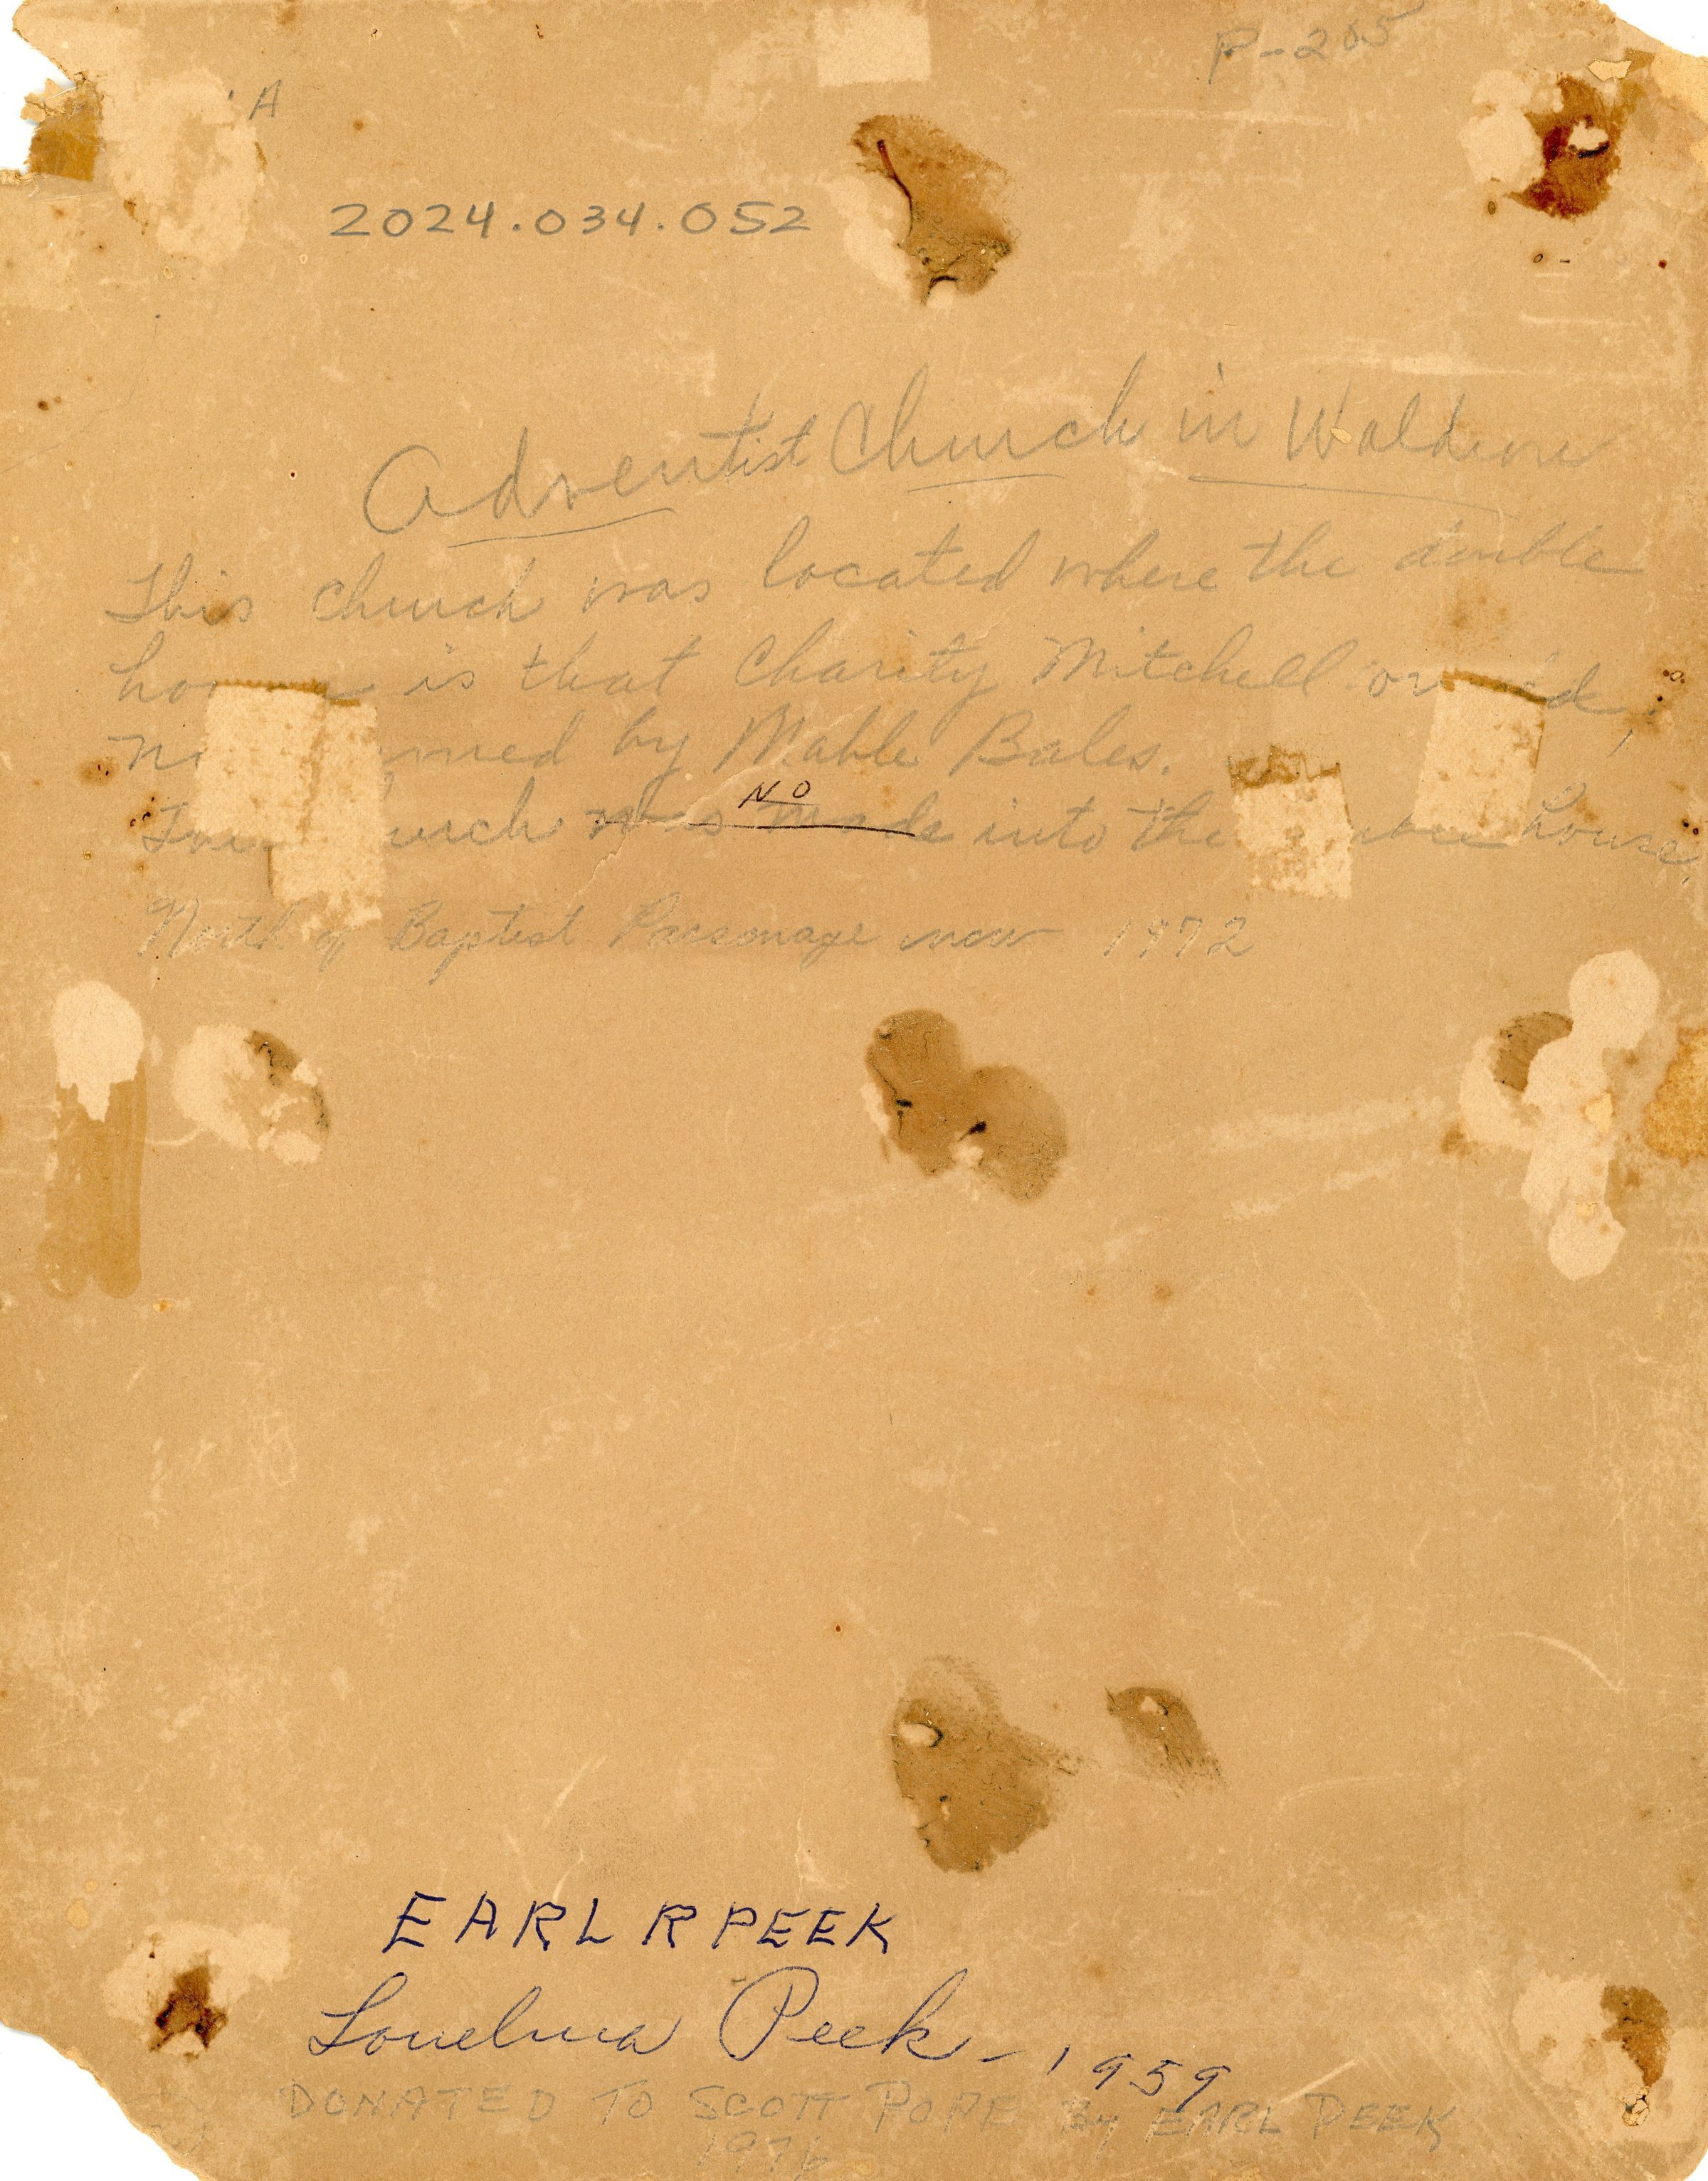 P-205
A
2024.034.052
Adventist Church in Waldron
This church was located where the double
is that Charity Mitchell
by Mable Bales.
NO
was made into the house.
North of Baptist Parsonage now 1972
EARL R PEEK
Louelma Peek - 1959
DONATED TO SCOTT POPE By EARL PEEK
1976